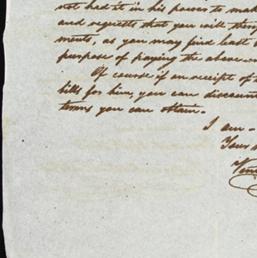 not had it in his power to mak
and requests that you will the
ments, as you may find least
purpose of paying the above
Of course if on receipt of t
bills for him, you can discoun
terms you can obtain.
I am
Your